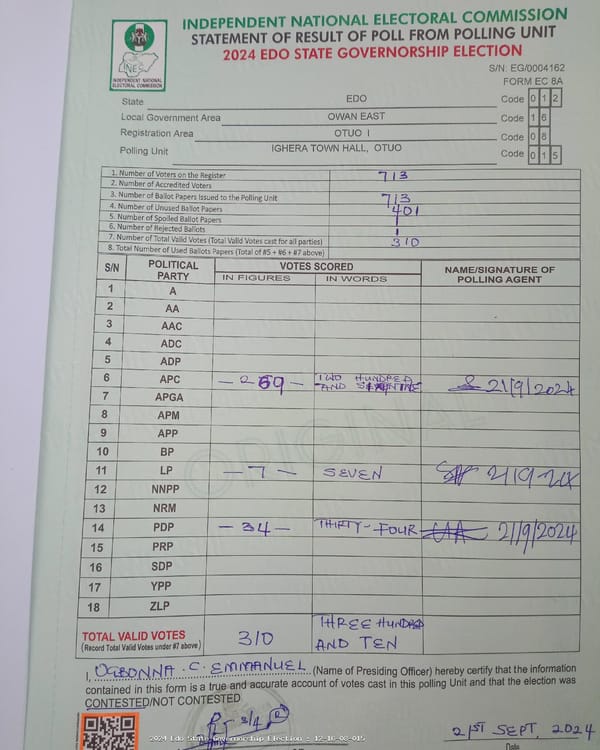 INDEPENDENT NATIONAL ELECTORAL COMMISSION
STATEMENT OF RESULT OF POLL FROM POLLING UNIT
2024 EDO STATE GOVERNORSHIP ELECTION
INEC
INDEPENDENT NATIONAL
ELECTORAL COMMISSION
S/N: EG/0004162
FORM EC 8A
State EDO Code 0 1 2
Local Government Area OWAN EAST Code 1 6
Registration Area OTUO I Code 0 8
Polling Unit IGHERA TOWN HALL, OTUO Code 0 1 5
1. Number of Voters on the Register 713
2. Number of Accredited Voters
3. Number of Ballot Papers Issued to the Polling Unit 713
4. Number of Unused Ballot Papers 401
5. Number of Spoiled Ballot Papers 1
6. Number of Rejected Ballots 1
7. Number of Total Valid Votes (Total Valid Votes cast for all parties) 310
8. Total Number of Used Ballots Papers (Total of #5 + #6 + #7 above)
S/N POLITICAL PARTY VOTES SCORED NAME/SIGNATURE OF POLLING AGENT
IN FIGURES IN WORDS
1 A
2 AA
3 AAC
4 ADC
5 ADP
6 APC - 269 - TWO HUNDRED AND 21/9/2024
7 APGA
8 APM
9 APP
10 BP
11 LP - 7 - SEVEN
12 NNPP
13 NRM
14 PDP - 34 - THIRTY-FOUR 21/9/2024
15 PRP
16 SDP
17 YPP
18 ZLP
TOTAL VALID VOTES 310 THREE HUNDRED AND TEN
(Record Total Valid Votes under #7 above)
ORIGINAL
I, OGBONNA .C. EMMANUEL (Name of Presiding Officer) hereby certify that the information
contained in this form is a true and accurate account of votes cast in this polling Unit and that the election was
CONTESTED/NOT CONTESTED
21ST SEPT, 2024
2024 Edo State Governorship Election - 12-16-08-015
Date